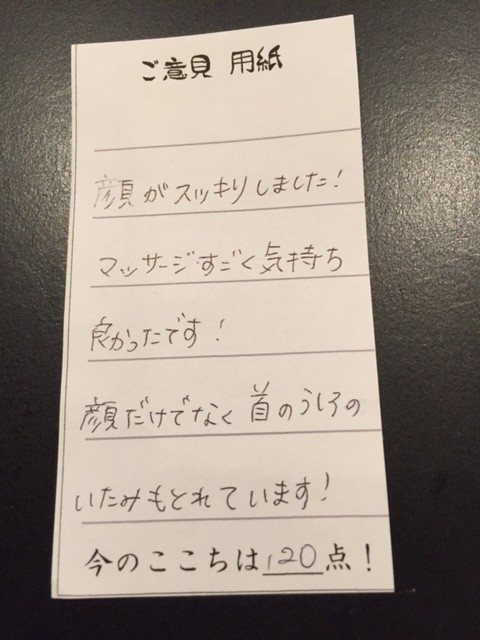 ご意見 用紙
顔がスッキりしました!
マッサージすごく気持ち
良かったです!
顔だけでなく 首のうしろの
いたみもとれています!
今のここちは120点!